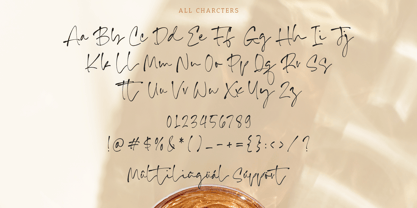 ALL CHARCTERS
Aa Bb Cc Dd Ee Ff Gg Hh Ii Jj
Kk Ll Mm Nn Oo Pp Qq Rr Ss
Tt Uu Vv Ww Xx Yy Zz
0123456789
!@#$%&*()_-+={}:<>/?
Multilingual Support